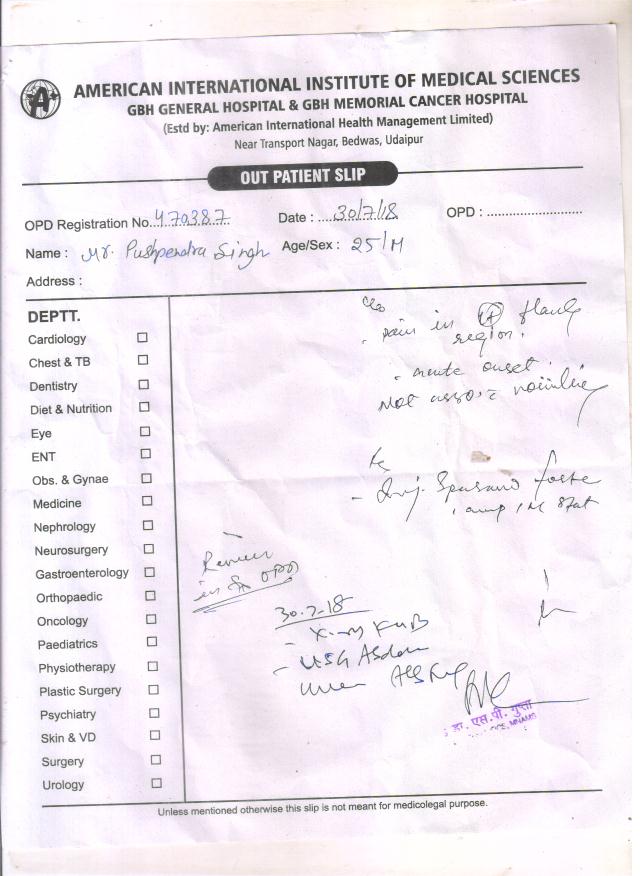 AMERICAN INTERNATIONAL INSTITUTE OF MEDICAL SCIENCES
GBH GENERAL HOSPITAL & GBH MEMORIAL CANCER HOSPITAL
(Estd by: American International Health Management Limited)
Near Transport Nagar, Bedwas, Udaipur
OUT PATIENT SLIP
OPD Registration No. 470387 Date : 30/7/18 OPD :
Name : Mr. Pushpendra Singh Age/Sex : 25/M
Address :
DEPTT.
Cardiology
Chest & TB
Dentistry
Diet & Nutrition
Eye
ENT
Obs. & Gynae
Medicine
Nephrology
Neurosurgery
Gastroenterology
Orthopaedic
Oncology
Paediatrics
Physiotherapy
Plastic Surgery
Psychiatry
Skin & VD
Surgery
Urology
c/o
- pain in flank
region.
- acute onset.
Not asso. c vomiting
- Inj. forte
1 amp IM Stat
Review
in OPD
30.7.18
- X-ray KUB
- USG Abdomen
Urine
डा. एस.पी. गुप्ता
Unless mentioned otherwise this slip is not meant for medicolegal purpose.